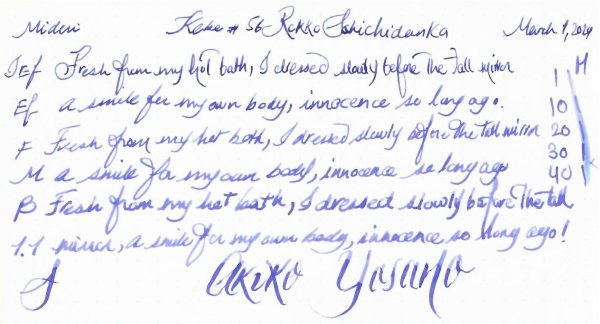 Midori Kobe # 56 Rokko Shichidanka March 1, 2024
EF Fresh from my hot bath, I dressed slowly before the tall mirror 1 M
EF a smile for my own body, innocence so long ago. 10
F Fresh from my hot bath, I dressed slowly before the tall mirror 20
30
M a smile for my own body, innocence so long ago 40
B Fresh from my hot bath, I dressed slowly before the tall
1.1 mirror, a smile for my own body, innocence so long ago!
Akiko Yosano